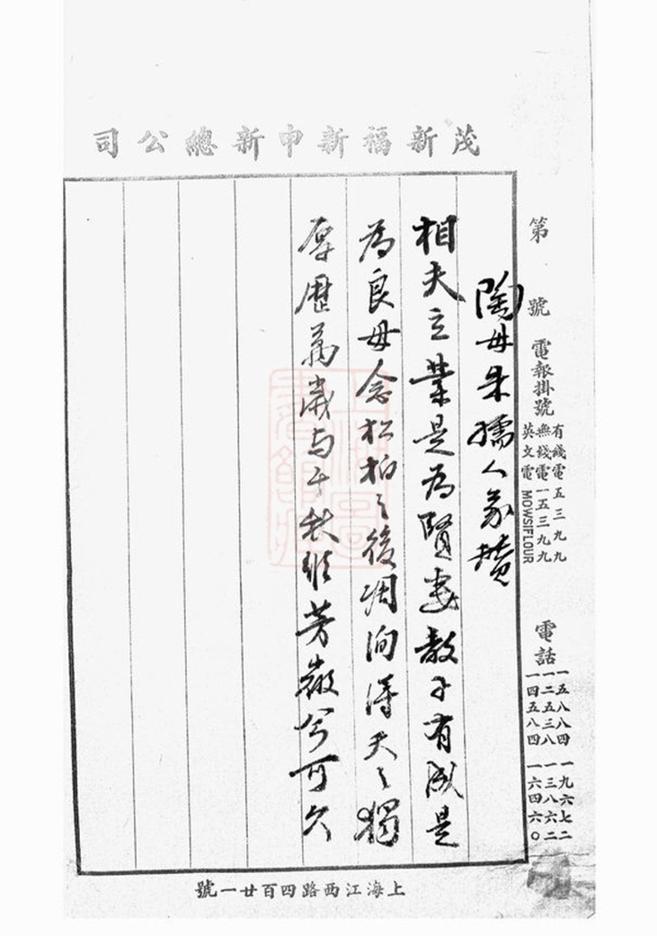 茂新福新申新總公司
第 號 電報掛號
有綫電 五三九九
無綫電 一五三九九
英文電 MOWSIFLOUR
電話
一五八八四 一九六七二
一二五三八 一三八六二
一四五八四 一六四六〇
陶母朱孺人象贊
相夫立業是為賢妻教子有成是
為良母念松柏之後凋洵得天之獨
厚歷萬歲与千秋芳徽兮可久
上海江西路四百廿一號
上海圖書館藏